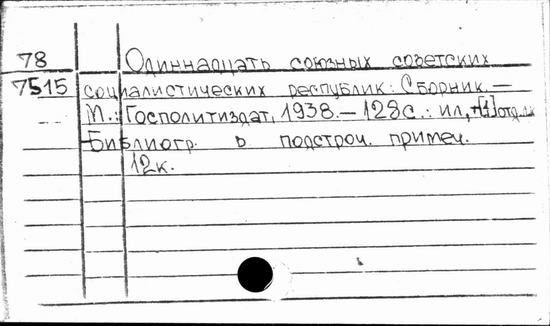 78 Одиннадцать союзных советских
7515 социалистических республик: Сборник. —
М.: Госполитиздат, 1938. — 128с.: ил, +[1]отд.л.
Библиогр. в подстроч. примеч.
12к.